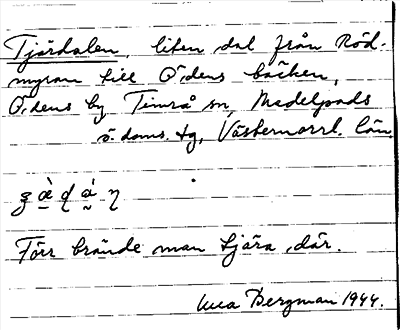 Tjärdalen, liten dal från Röd-
myran till Ödens bäcken,
Ödens by Timrå sn, Medelpads
ö. doms. tg, Västernorrl. län.
Förr brände man tjära där.
Bergman 1944.